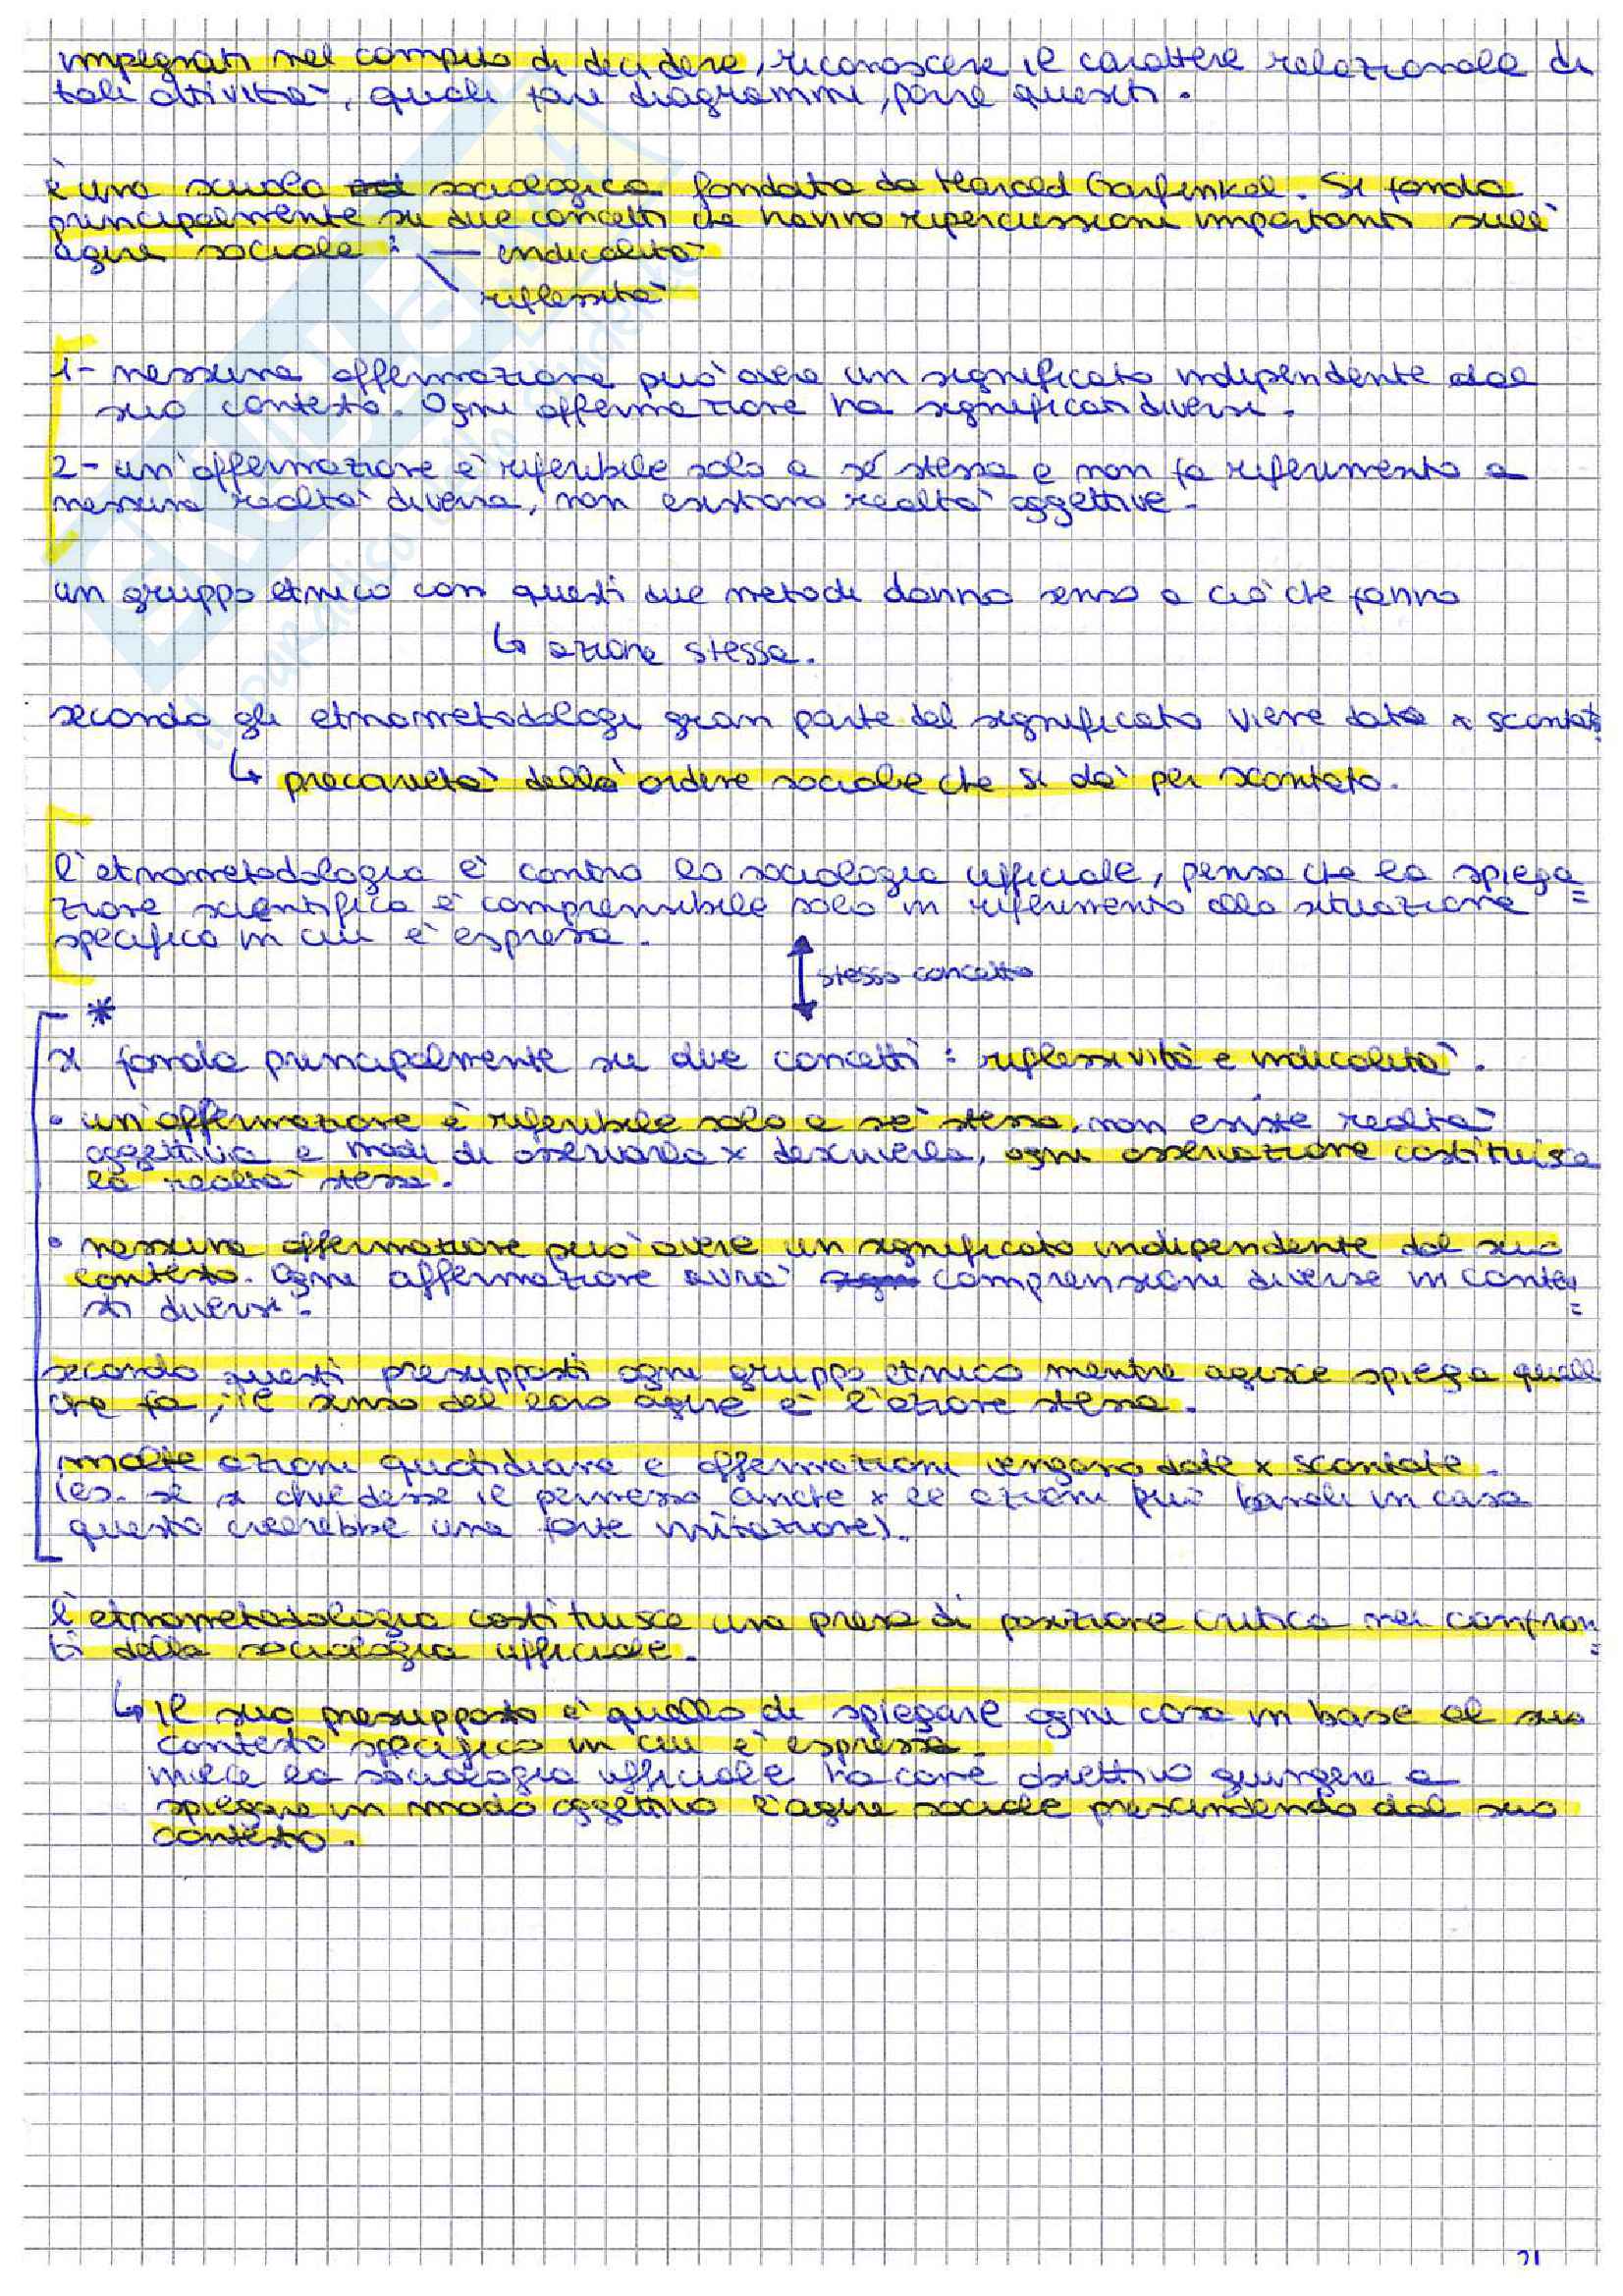 impegnati nel compito di decidere, riconoscere il carattere relazionale di
tali attività, quali fare diagrammi, porre quesiti.
È una scuola sociologica fondata da Harold Garfinkel. Si fonda
principalmente su due concetti che hanno ripercussioni importanti sull'
agire sociale : — indicalità
riflessità
1- nessuna affermazione può avere un significato indipendente dal
suo contesto. Ogni affermazione ha significati diversi.
2- un'affermazione è riferibile solo a sé stessa e non fa riferimento a
nessuna realtà diversa, non esistono realtà oggettive.
un gruppo etnico con questi due metodi danno senso a ciò che fanno
↳ azione stessa.
secondo gli etnometodologi gran parte del significato viene dato x scontato.
↳ precarietà dello ordine sociale che si dà per scontato.
l'etnometodologia è contro la sociologia ufficiale, pensa che la spiega=
zione scientifica è comprensibile solo in riferimento alla situazione
specifica in cui è espressa.
stesso concetto
*
si fonda principalmente su due concetti : riflessività e indicalità.
• un'affermazione è riferibile solo a sé stessa, non esiste realtà
oggettiva e modi di osservarla x descriverla, ogni osservazione costituisce
la realtà stessa.
• nessuna affermazione può avere un significato indipendente dal suo
contesto. Ogni affermazione avrà comprensioni diverse in conte=
sti diversi.
secondo questi presupposti ogni gruppo etnico mentre agisce spiega quell
che fa, il senso del loro agire è l'azione stessa.
molte azioni quotidiane e affermazioni vengono date x scontate.
(es. se si chiedesse il permesso anche x le azioni più banali in casa
questo creerebbe una forte irritazione).
l'etnometodologia costituisce una presa di posizione critica nei confron=
ti della sociologia ufficiale.
↳ Il suo presupposto è quello di spiegare ogni cosa in base al suo
contesto specifico in cui è espressa.
invece la sociologia ufficiale ha come obiettivo giungere a
spiegare in modo oggettivo l'agire sociale prescindendo dal suo
contesto.
21